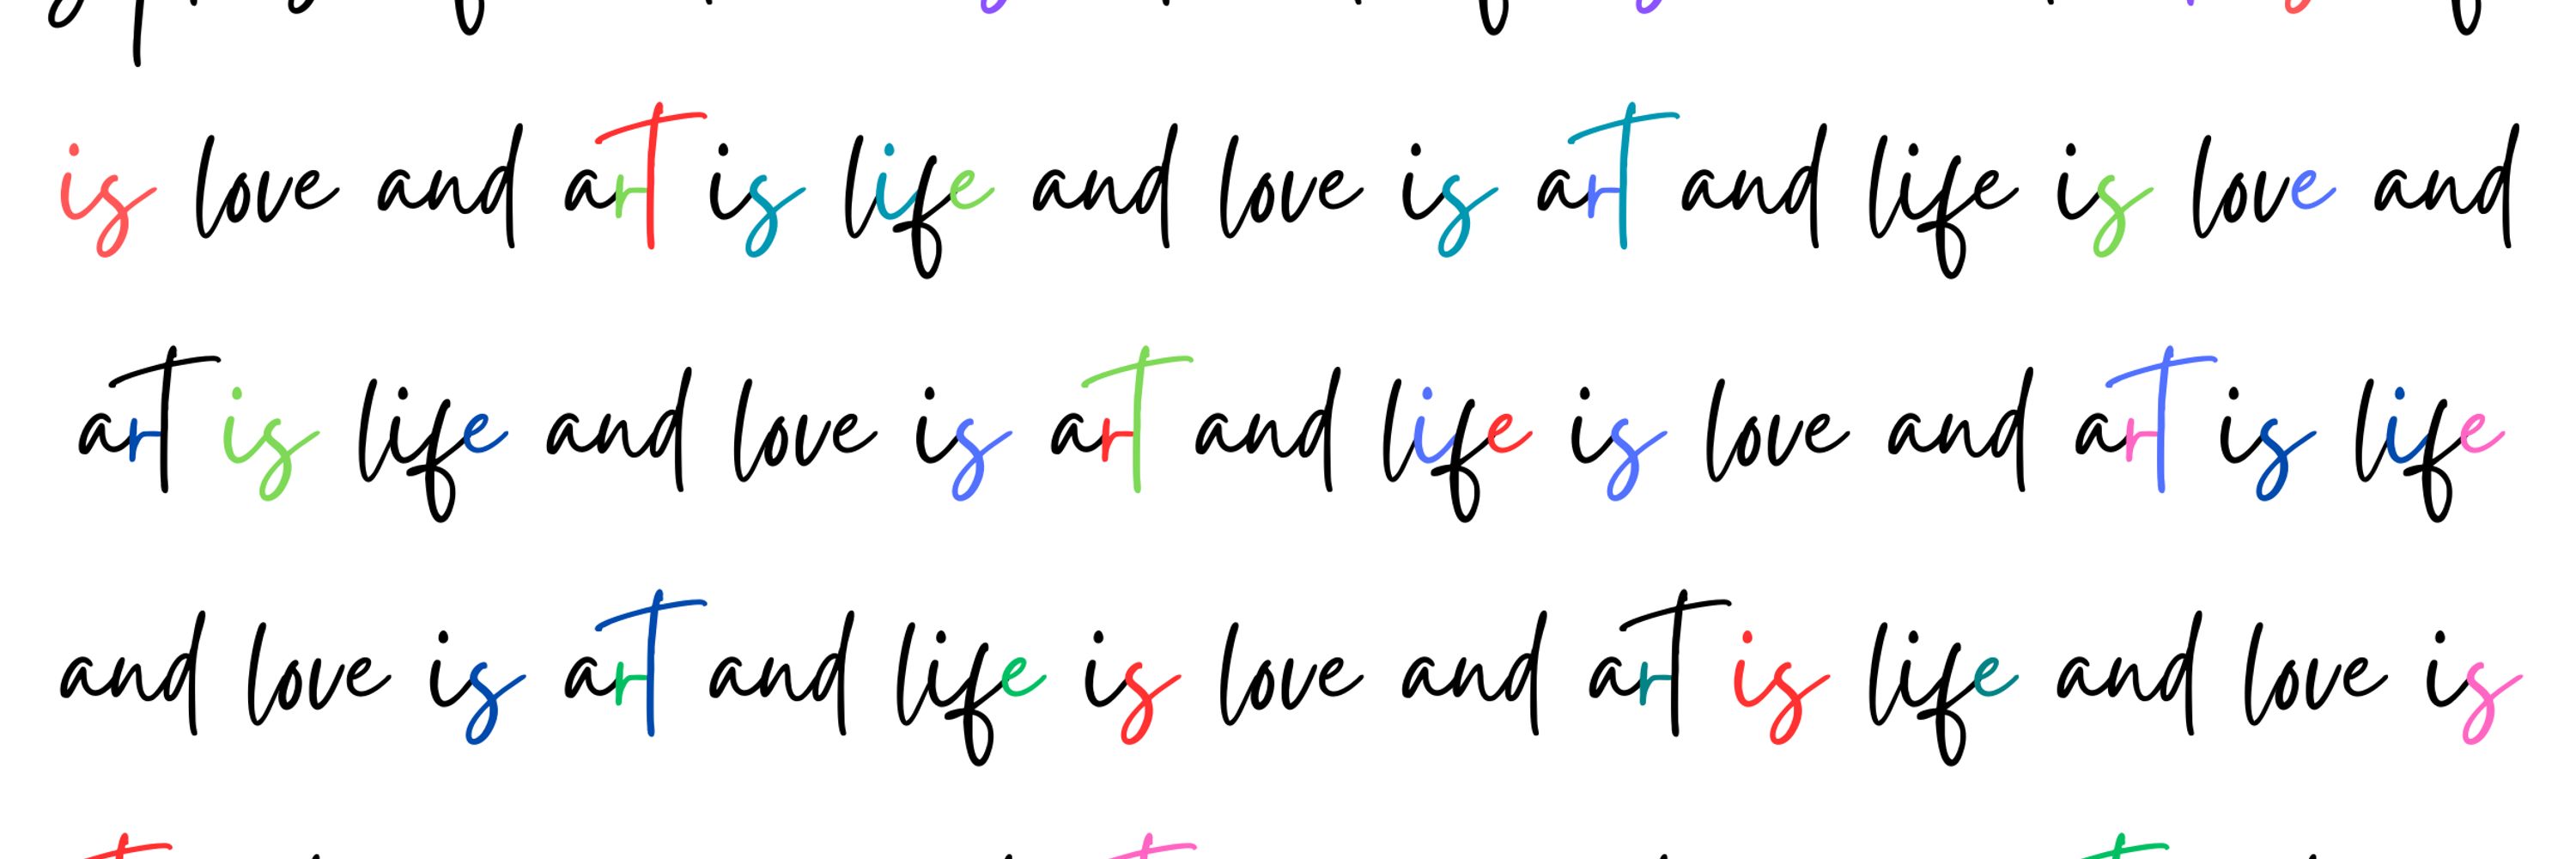 is love and art is life and love is art and life is love and
art is life and love is art and life is love and art is life
and love is art and life is love and art is life and love is